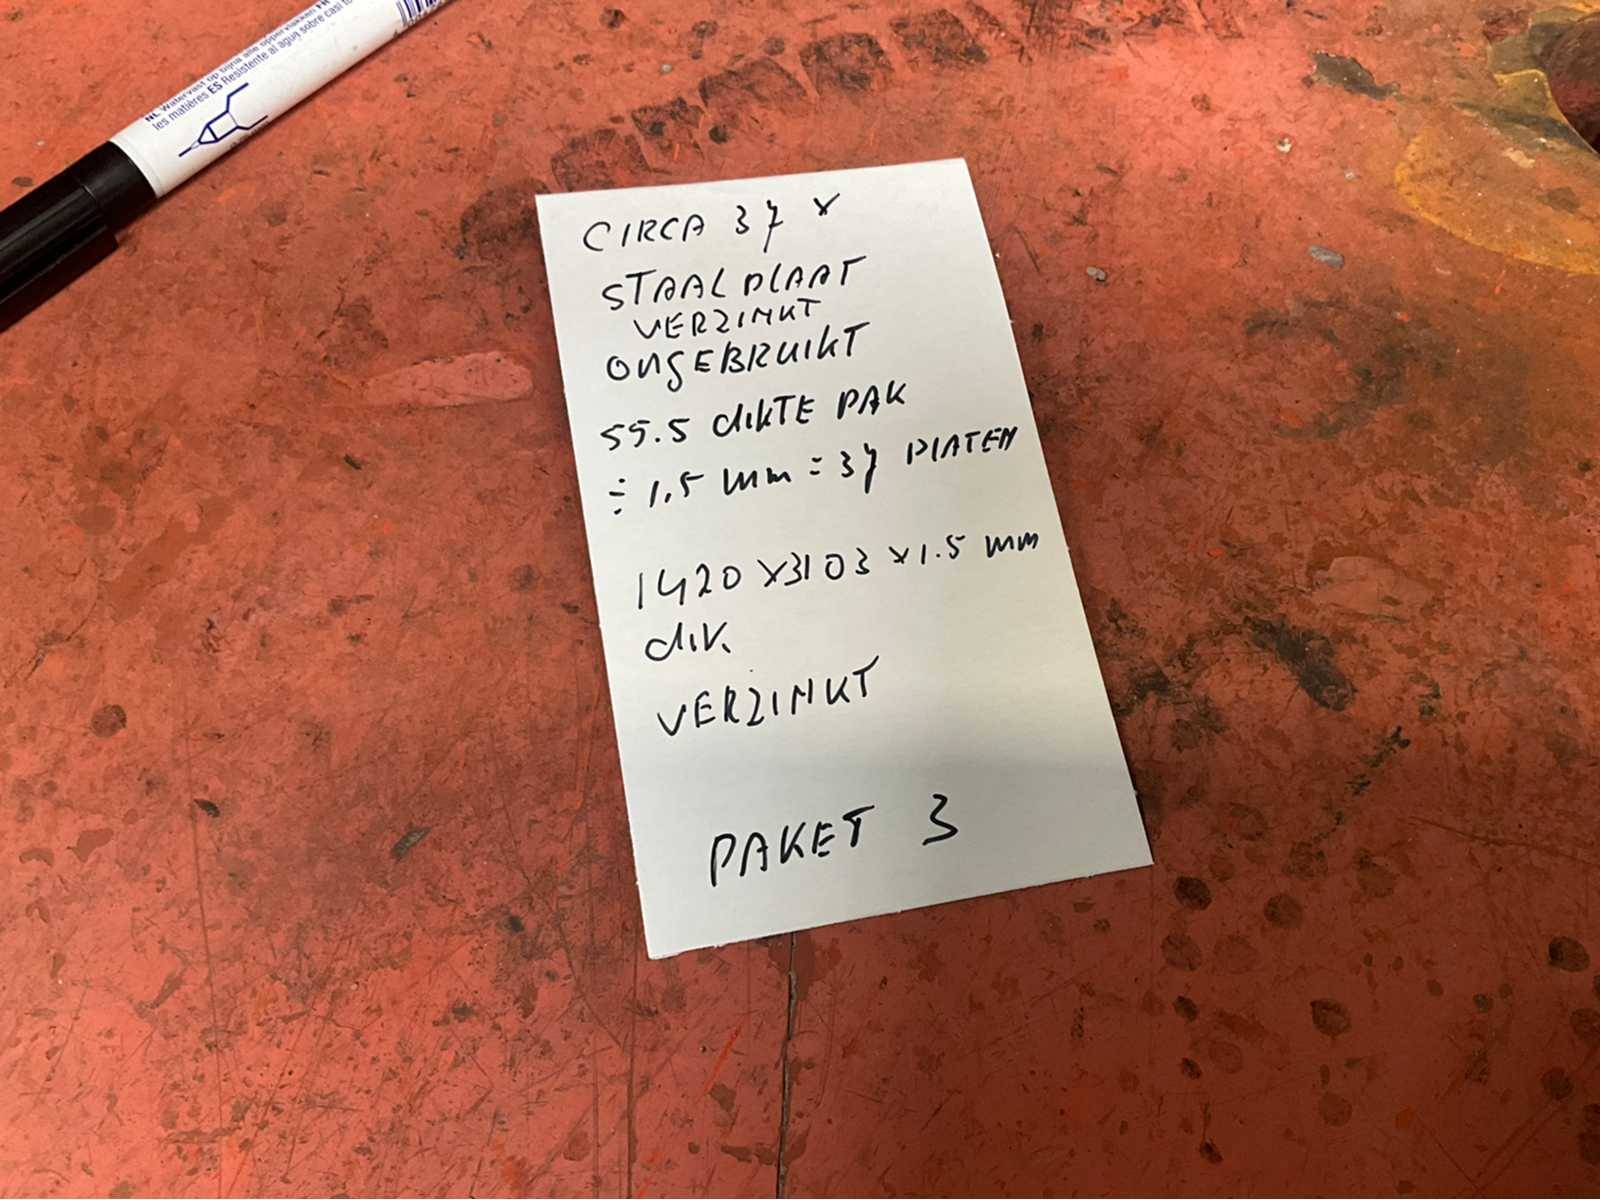 NL Watervast op bijna alle oppervlakken FR
les matières ES Resistente al agua sobre casi to
CIRCA 37 x
STAALPLAAT
VERZINKT
ONGEBRUIKT
55.5 dikTE PAK
÷ 1.5 mm = 37 PlATEN
1420 x 3103 x 1.5 mm
dik.
VERZINKT
PAKET 3